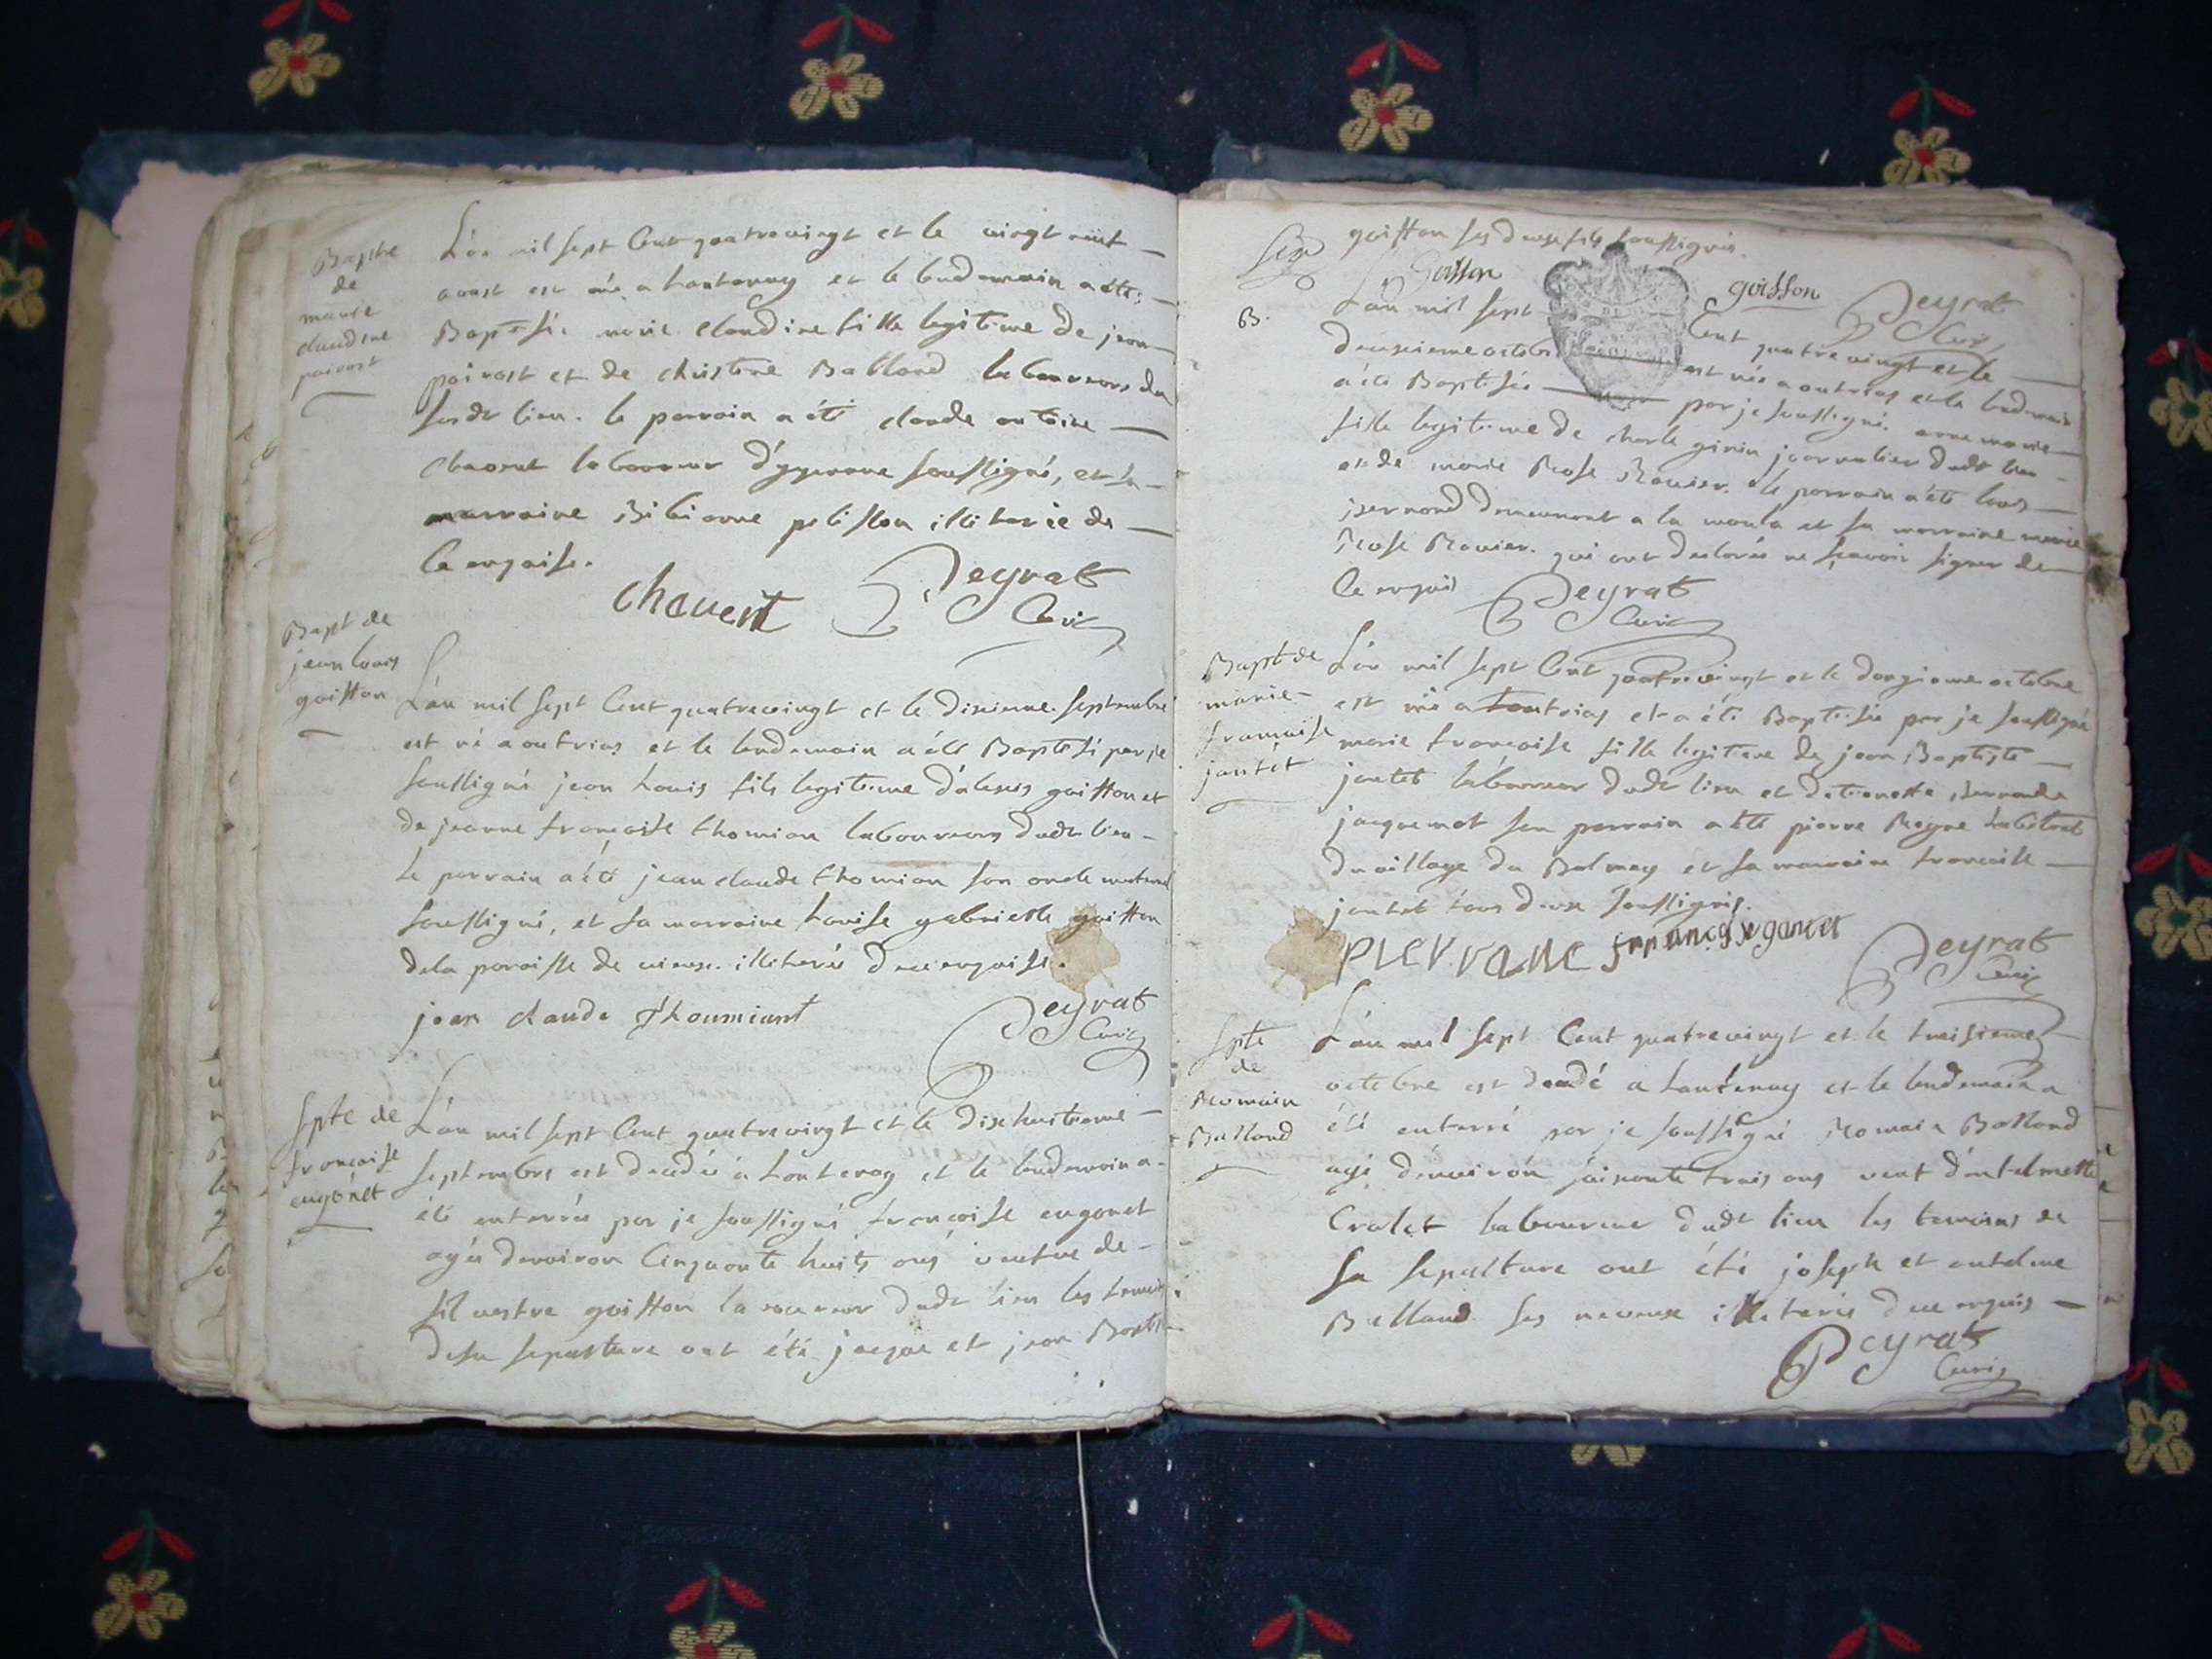 Baptre
de
marie
claudine
poirost
L'an mil sept Cent quatrevingt et le vingt
aoust est née a Lantenay et le lendemain a été
Baptisée marie claudine fille legitime de jean
poirost et de christine Balland laboureurs du
susdt lieu. le parrain a été claude antoine
chavent laboureur soussigné, et sa
marraine Bibianne pelisson illiterée de
ce enquise.
chavent Peyrat
Curé
Bapt de
jean louis
goiffon
L'an mil sept Cent quatrevingt et le dixieme septembre
est né a outrias et le lendemain a été Baptisé par je
soussigné jean Louis fils legitime d'alexis goiffon et
de jeanne françoise thomian laboureurs dudt lieu
Le parrain a été jean claude thomian son oncle maternel
soussigné, et sa marraine Louise gabrielle goiffon
dela paroisse de vieux. illiterée de ce enquise.
jean claude Thoumiant Peyrat
Curé
Spte de
françoise
eugonet
L'an mil sept Cent quatrevingt et le dixhuitieme
septembre est decedée a Lantenay et le lendemain a
été enterrée par je soussigné françoise eugonet
agée denviron Cinquante huits ans veufve de
silvestre goiffon laboureur dudt lieu les temoins
desa sepulture ont été jacque et jean Baptiste
goiffon ses deux fils soussignés.
Goiffon goiffon Peyrat
Curé
B.
L'an mil sept Cent quatre vingt et le
deuxieme octobre est née a outrias et le lendemain
a été Baptisée par je soussigné anne marie
fille legitime de charle girin journalier dudt lieu
et de marie Rose Ravier. le parrain a été
demeurant a la et sa marraine marie
Rose Ravier. qui ont declarés ne sçavoir signer de
ce enquis Peyrat
Curé
Bapt de
marie
françoise
jantet
L'an mil sept Cent quatrevingt et le dougieme octobre
est née a outrias et a été Baptisée par je soussigné
marie françoise fille legitime de jean Baptiste
jantet laboureur dudt lieu et
jacquemet son parrain a été pierre habitant
du village du Balmay et sa marraine françoise
jantet tous deux soussignés.
françoise gantet Peyrat
Curé
Spte
de
Romain
Balland
L'an mil sept Cent quatrevingt et le treisieme
octobre est decedé a Lantenay et le lendemain a
été enterré par je soussigné Romain Balland
agé denviron soisante trois ans veuf d'antelmette
Cralet laboureur dudt lieu les temoins de
sa sepulture ont été joseph et antelme
Balland ses neveux illiterés de ce enquis
Peyrat
Curé